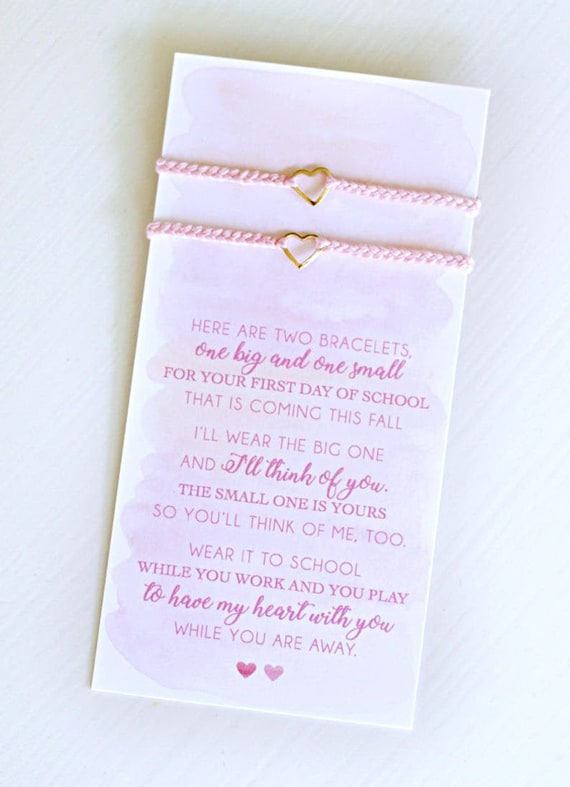 HERE ARE TWO BRACELETS,
one big and one small
FOR YOUR FIRST DAY OF SCHOOL
THAT IS COMING THIS FALL
I'LL WEAR THE BIG ONE
AND I'll think of you.
THE SMALL ONE IS YOURS
SO YOU'LL THINK OF ME, TOO.
WEAR IT TO SCHOOL
WHILE YOU WORK AND YOU PLAY
to have my heart with you
WHILE YOU ARE AWAY.